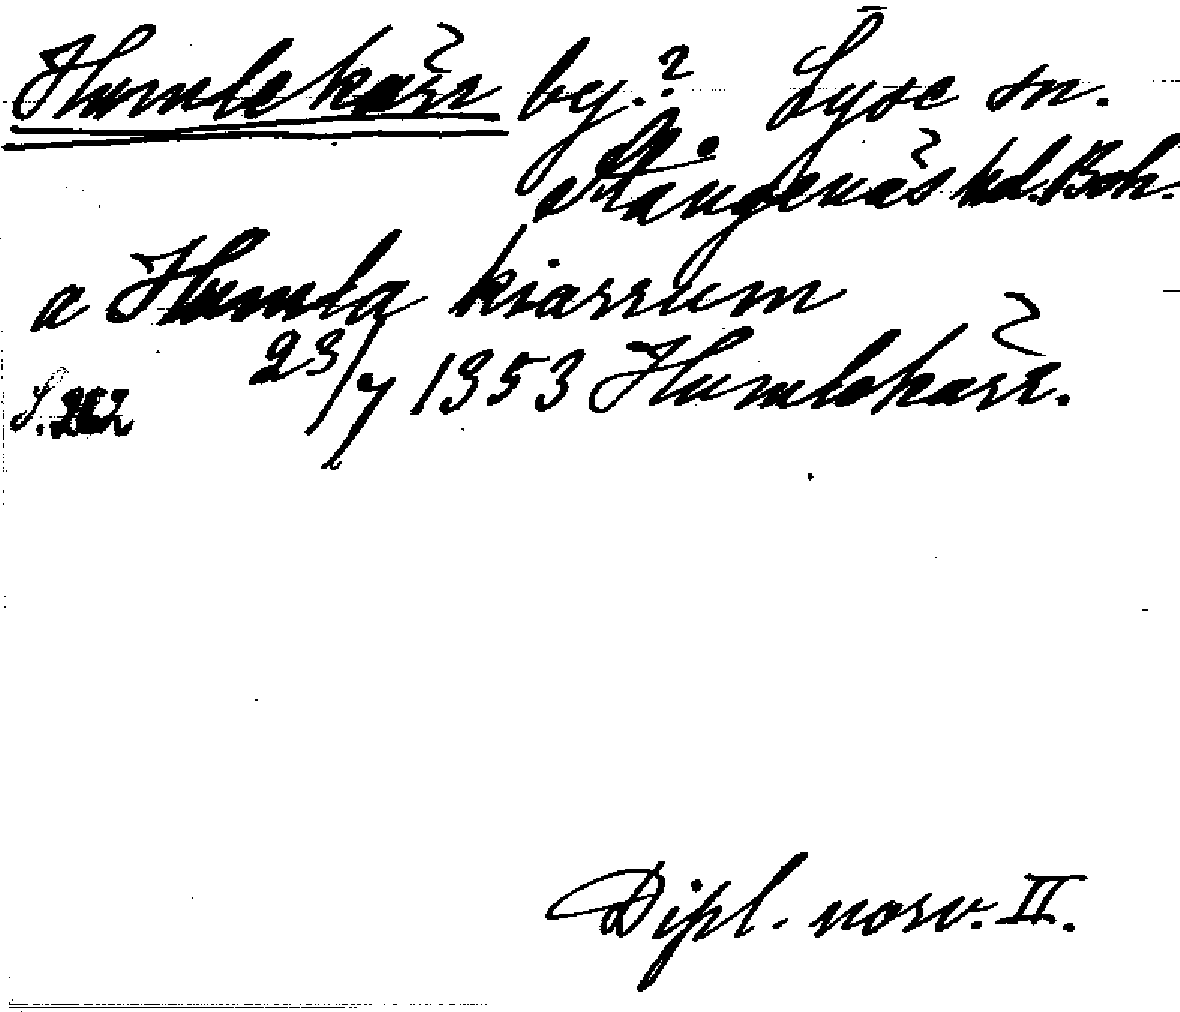 Humlekärr by.? Lyse sn.
g. Stångenäs hd. Boh.
a Humla kiarrum
S. 262 23/7 1353 Humlekärr.
Dipl. norv. II.